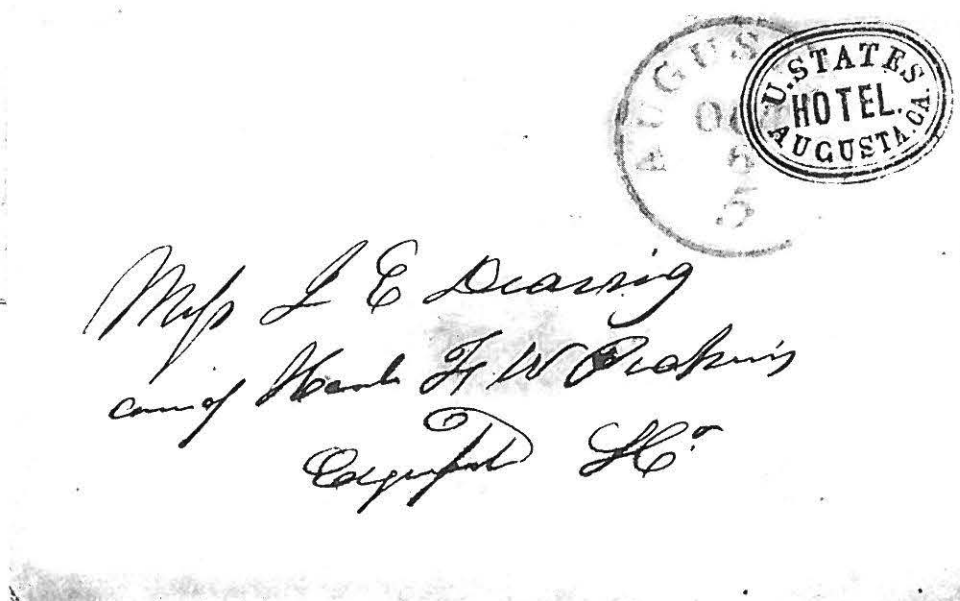 AUGUS
OC
5
U. STATES
HOTEL.
AUGUSTA. GA.
Miss L E Dearing
care of Honble F W Pickens
Edgefield